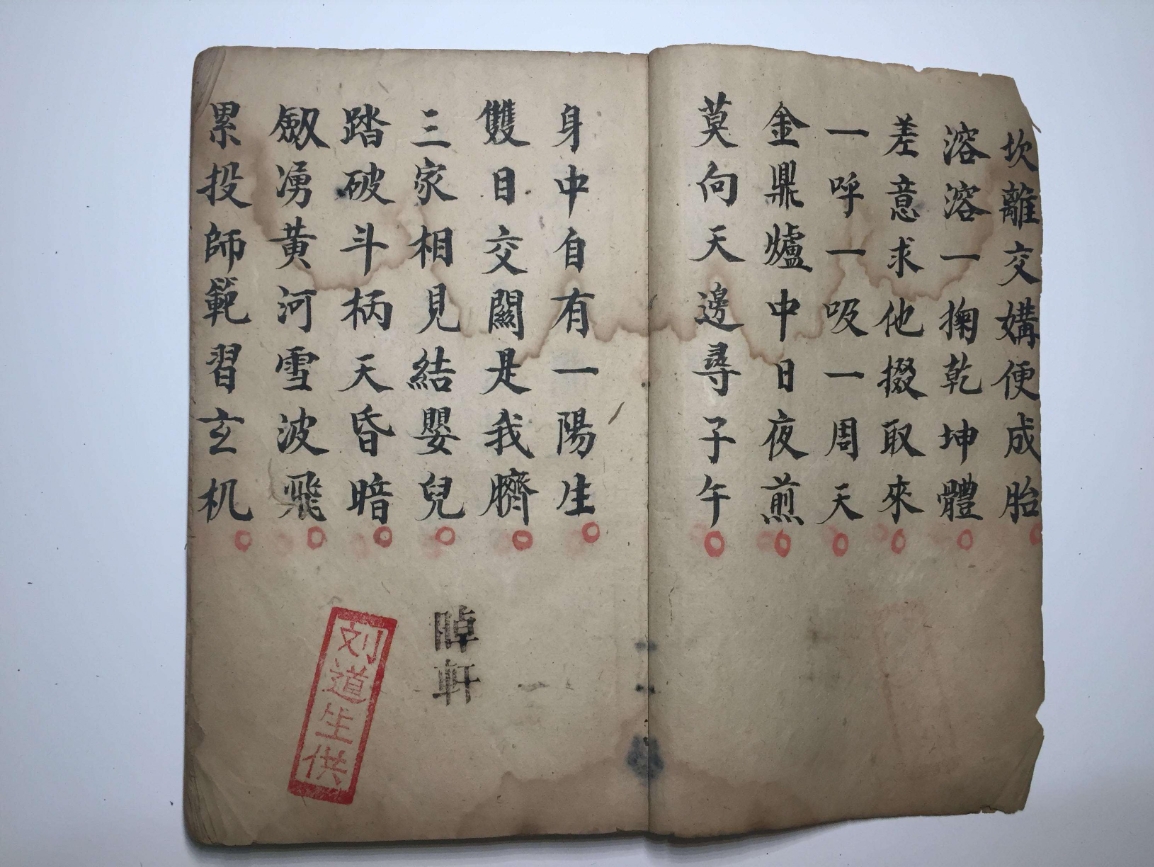 坎離交媾便成胎
溶溶一掬乾坤體
差意求他掇取來
一呼一吸一周天
金鼎爐中日夜煎
莫向天邊尋子午
身中自有一陽生
雙目交關是我臍
三家相見結嬰兒
踏破斗柄天昏暗
劔湧黃河雪波飛
累投師範習玄机
晫軒
刘道生供